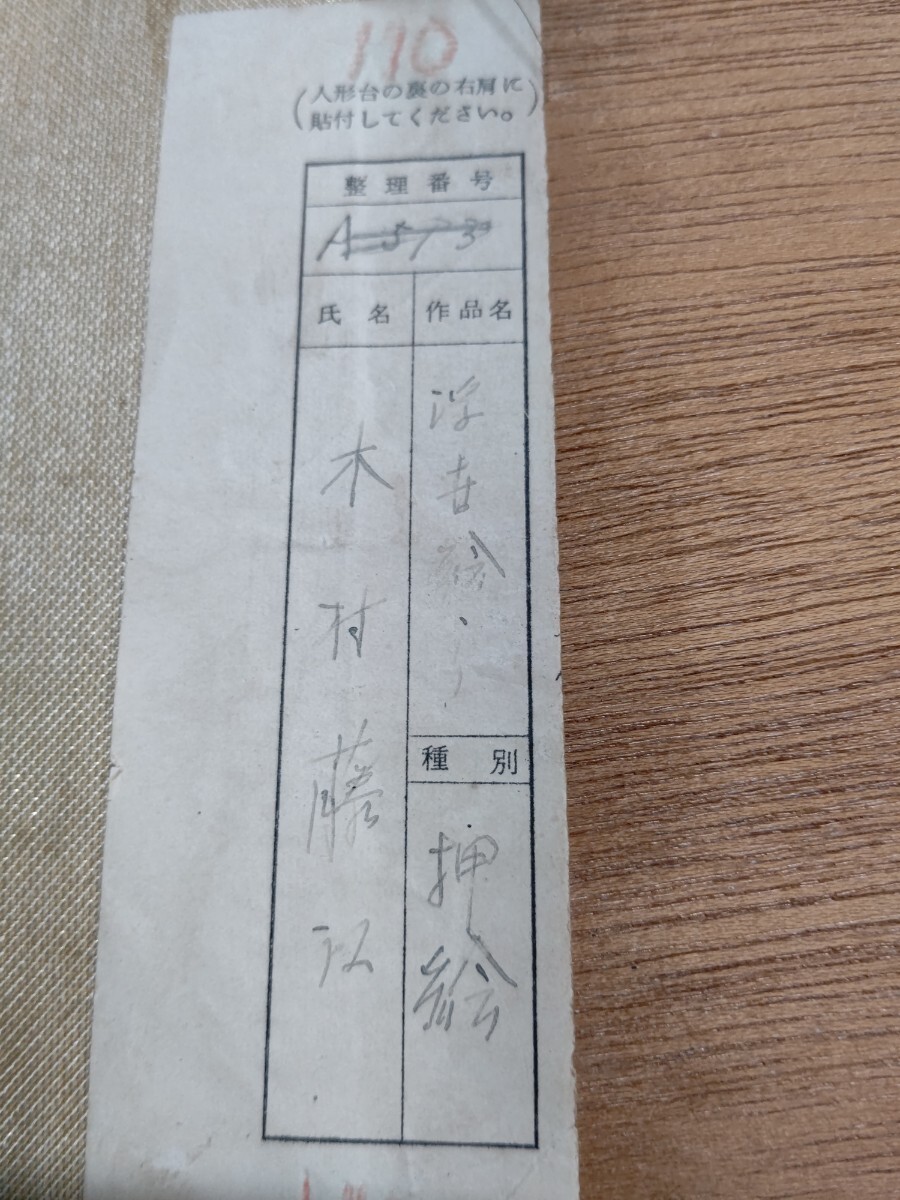 190
(人形台の裏の右肩に
貼付してください。)
整理番号
A 573
作品名
浮世絵
種別
押絵
氏名
木村藤江